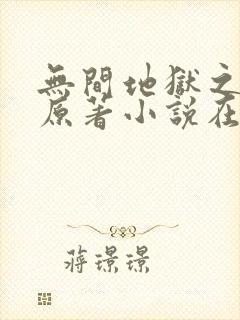 無間地獄之
原著小說在
蔣璟璟